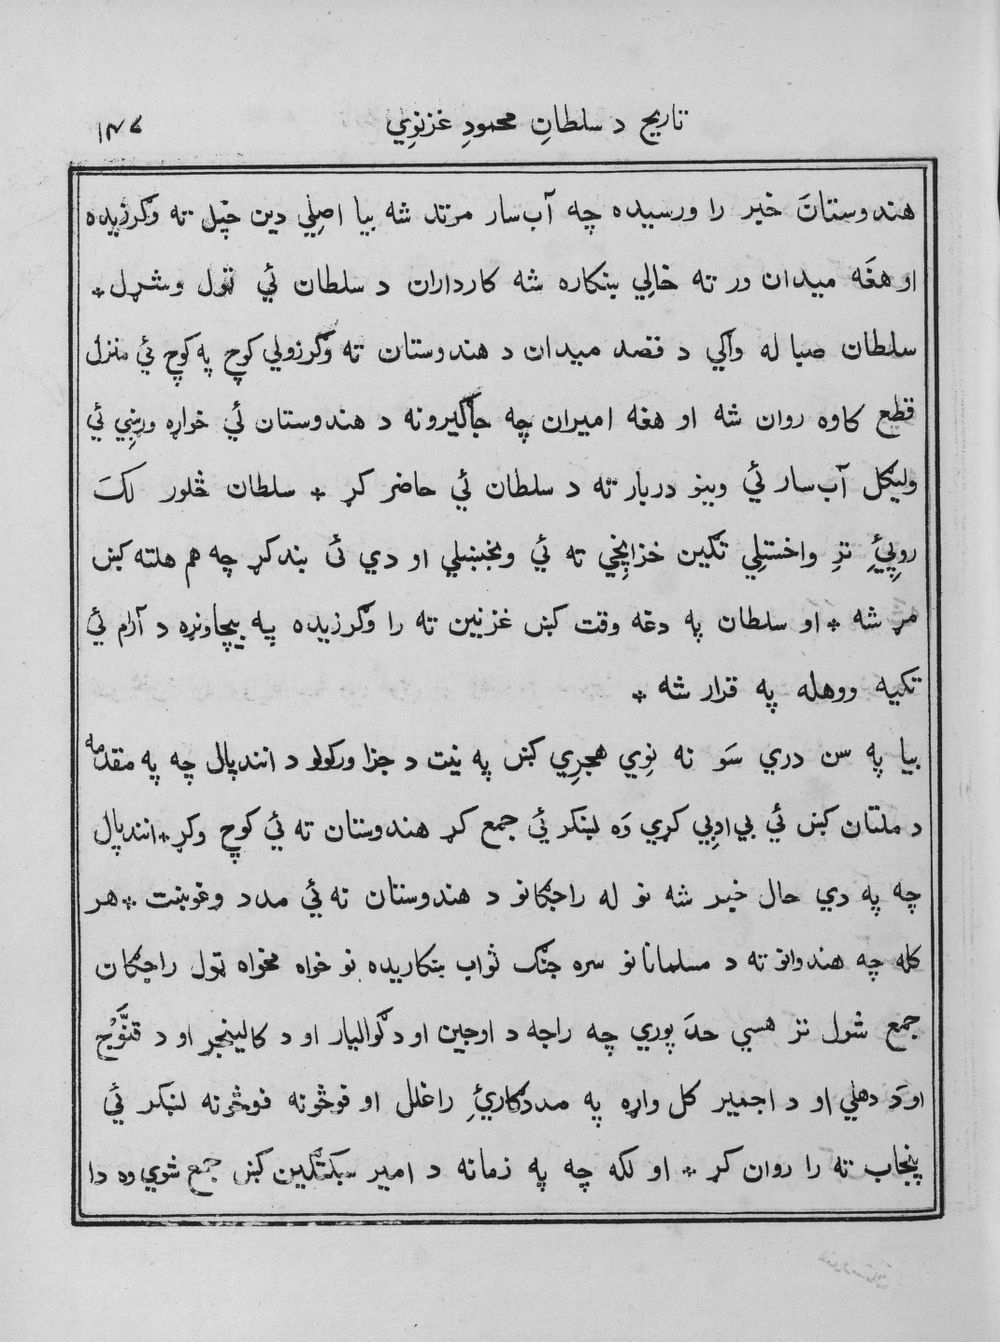 تاریخ د سلطانِ محمودِ غزنوِي ۱۴۷
هندوستانَ خبر را ورسیده چه آب‌سار مرتد شه بیا اصلِي دین خپل ته وګرزیده
او هغَه میدان ور ته خالِي ښکاره شه کارداران د سلطان ئي ټول وشړل *
سلطان صبا له واګي د قصد میدان د هندوستان ته وګرزولي کوچ په کوچ ئي منزل
قطع کاوه روان شه او هغه امیران چه جاګیرونه د هندوستان ئي خواړه وړښي ئي
ولیګل آب‌سار ئي وینو دربار ته د سلطان ئي حاضر کړ * سلطان څلور لکَ
روپِئِ ترِ واخستلِي تګین خزانچِي ته ئي وبخښلي او دي ئ بند کړ چه هم هلته کښ
مړ شه * او سلطان په دغه وقت کښ غزنین ته را وګرزیده په بیچاونړه د آرام ئي
تکیه ووهله په قرار شه *
بیا په سن دري سَو نه نوِي هجرِي کښ په نیت د جزا ورکولو د انندپال چه په مقدمه
د ملتان کښ ئي بي‌ادبِي کړي وَه لښکر ئي جمع کړ هندوستان ته ئي کوچ وکړ * انندپال
چه په دي حال خبر شه نو له راجګانو د هندوستان نه ئي مدد وغوښت * هر
کله چه هندوانو ته د مسلمانانو سره جنګ ثواب ښکاریده نو خواه مخواه ټول راجګان
جمع شول تر هسي حدَ پوري چه راجه د اوجین او د ګوالیار او د کالینجر او د قنَّوْج
او دَ دهلي او د اجمیر کل واړه په مددګارئِ راغلل او فوځونه فوځونه لښکر ئي
پنجاب ته را روان کړ * او لکه چه په زمانه د امیر سبکتګین کښ جمع شوي وه دا